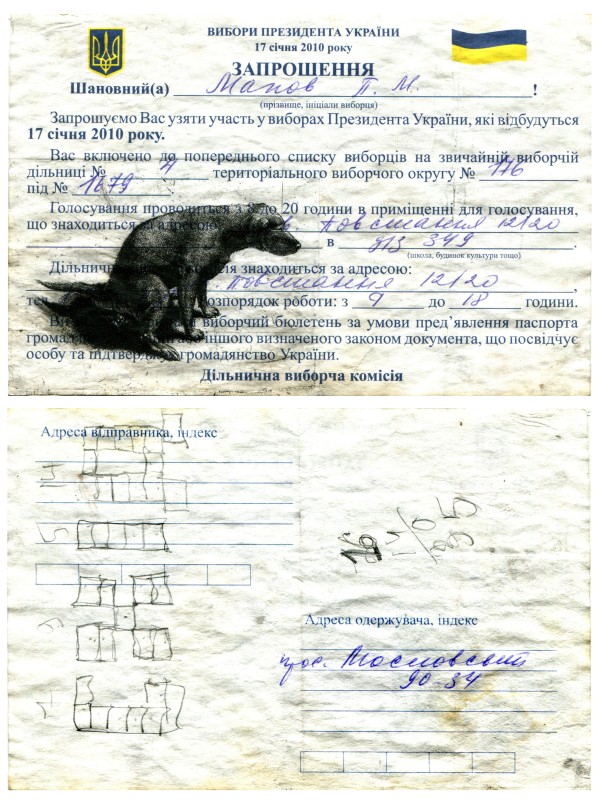 ВИБОРИ ПРЕЗИДЕНТА УКРАЇНИ
17 січня 2010 року
ЗАПРОШЕННЯ
Шановний(а) Мапов П. М. !
(прізвище, ініціали виборця)
Запрошуємо Вас узяти участь у виборах Президента України, які відбудуться
17 січня 2010 року.
Вас включено до попереднього списку виборців на звичайній виборчій
дільниці № територіального виборчого округу № 176
під № 1679
Голосування проводиться з 8 до 20 години в приміщенні для голосування,
що знаходиться за адресою: Повстання 12/20
в 349
(школа, будинок культури тощо)
Дільнична комісія знаходиться за адресою:
Повстання 12/20 ,
тел. Розпорядок роботи: з 9 до 18 години.
виборчий бюлетень за умови пред’явлення паспорта
або іншого визначеного законом документа, що посвідчує
особу та підтверджує громадянство України.
Дільнична виборча комісія
Адреса відправника, індекс
16
Адреса одержувача, індекс
прос. Московський
90-34